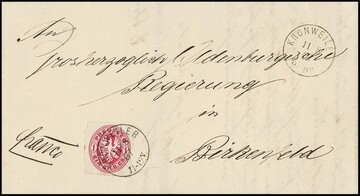 An
Grosherzoglich Oldenburgische
Regierung
in
Birkenfeld
franco
KRONWEILER
11